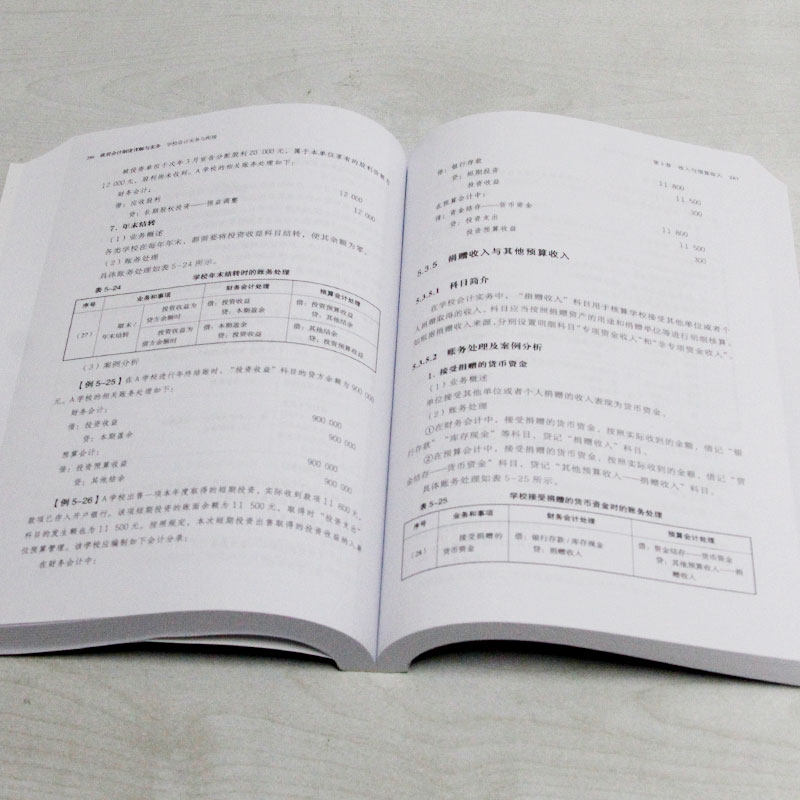 政府会计制度详解与实务 学校会计实务与衔接
被投资单位于次年3月宣告分配股利20 000元,属于本单位享有的股利份额为
12 000元,股利尚未收到。A学校的相关账务处理如下:
财务会计:
借:应收股利 12 000
贷:长期股权投资——损益调整 12 000
7. 年末结转
(1)业务概述
各类学校在每年年末,都需要将投资收益科目结转,使其余额为零。
(2)账务处理
具体账务处理如表5-24所示。
表5-24 学校年末结转时的账务处理
序号 业务和事项 财务会计处理 预算会计处理
(27) 期末/年末结转 投资收益为贷方余额时 借:投资收益 贷:本期盈余 借:投资预算收益 贷:其他结余
投资收益为借方余额时 借:本期盈余 贷:投资收益 借:其他结余 贷:投资预算收益
(3)案例分析
【例5-25】在A学校进行年终结账时,“投资收益”科目的贷方余额为900 000
元。A学校的相关账务处理如下:
财务会计:
借:投资收益 900 000
贷:本期盈余 900 000
预算会计:
借:投资预算收益 900 000
贷:其他结余 900 000
【例5-26】A学校出售一项本年度取得的短期投资,实际收到款项11 800元,
款项已存入开户银行。该项短期投资的账面余额为11 500元,取得时“投资支出”
科目的发生额也为11 500元。按照规定,本次短期投资出售取得的投资收益纳入单
位预算管理。该学校应编制如下会计分录:
在财务会计中:
第5章 收入与预算收入 247
借:银行存款 11 800
贷:短期投资 11 500
投资收益 300
在预算会计中:
借:资金结存——货币资金 11 800
贷:投资支出 11 500
投资预算收益 300
5.3.5 捐赠收入与其他预算收入
5.3.5.1 科目简介
在学校会计实务中,“捐赠收入”科目用于核算学校接受其他单位或者个
人捐赠取得的收入。科目应当按照捐赠资产的用途和捐赠单位等进行明细核算。
如根据捐赠收入来源,分别设置明细科目“专项资金收入”和“非专项资金收入”。
5.3.5.2 账务处理及案例分析
1. 接受捐赠的货币资金
(1)业务概述
单位接受其他单位或者个人捐赠的收入表现为货币资金。
(2)账务处理
①在财务会计中,接受捐赠的货币资金,按照实际收到的金额,借记“银
行存款”“库存现金”等科目,贷记“捐赠收入”科目。
②在预算会计中,接受捐赠的货币资金,按照实际收到的金额,借记“资
金结存——货币资金”科目,贷记“其他预算收入——捐赠收入”科目。
具体账务处理如表5-25所示。
表5-25 学校接受捐赠的货币资金时的账务处理
序号 业务和事项 财务会计处理 预算会计处理
(28) 接受捐赠的货币资金 借:银行存款/库存现金 贷:捐赠收入 借:资金结存——货币资金 贷:其他预算收入——捐赠收入